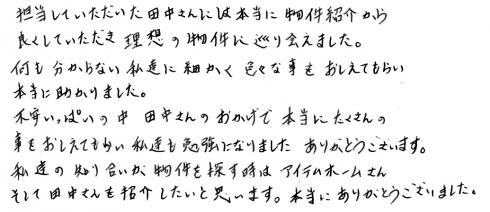 担当していただいた田中さんには本当に物件紹介から
良くしていただき理想の物件に巡り会えました。
何も分からない私達に細かく色々な事をおしえてもらい
本当に助かりました。
不安いっぱいの中 田中さんのおかげで本当にたくさんの
事をおしえてもらい私達も勉強になりました ありがとうございます。
私達の知り合いが物件を探す時はアイテムホームさん
そして田中さんを紹介したいと思います。本当にありがとうございました。